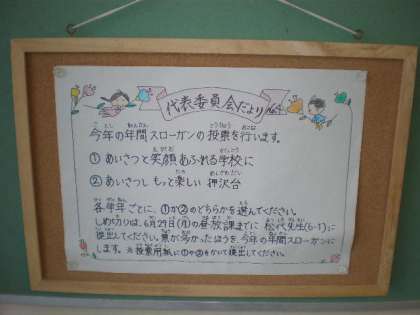 代表委員会だより
今年の年間スローガンの投票を行います。
① あいさつと笑顔あふれる学校に
② あいさつし もっと楽しい 押沢台
各学年ごとに、①か②のどちらかを選んでください。
しめくりは、6月29日(月)の昼放課までに 松代先生(6-1)に
提出してください。票が多かったほうを今年の年間スローガンに
します。※投票用紙に①か②をかいて提出してください。